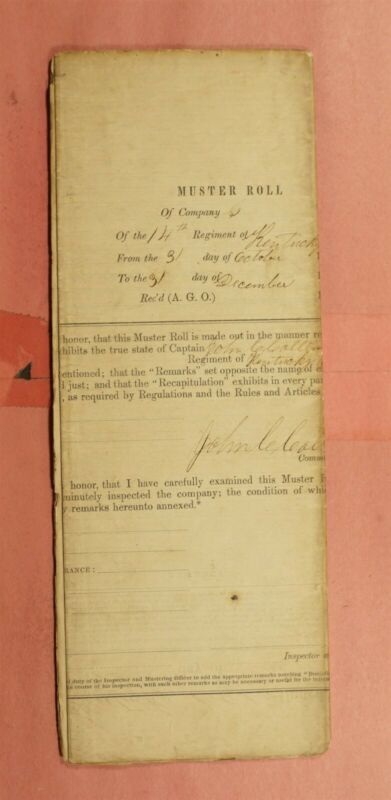 MUSTER ROLL
Of Company
Of the 14th Regiment of Kentucky
From the 31 day of October
To the 31 day of December
Rec'd (A. G. O.)
honor, that this Muster Roll is made out in the manner re
hibits the true state of Captain John C.
Regiment of Kentucky
entioned; that the "Remarks" set opposite the name of e
l just; and that the "Recapitulation" exhibits in every par
, as required by Regulations and the Rules and Articles
John C.
Comm
honor, that I have carefully examined this Muster R
minutely inspected the company; the condition of whi
y remarks hereunto annexed.*
RANCE:
Inspector
duty of the Inspector and Mustering Officer to add the appropriate remarks touching
course of his inspection, with such other remarks as may be necessary or useful for the